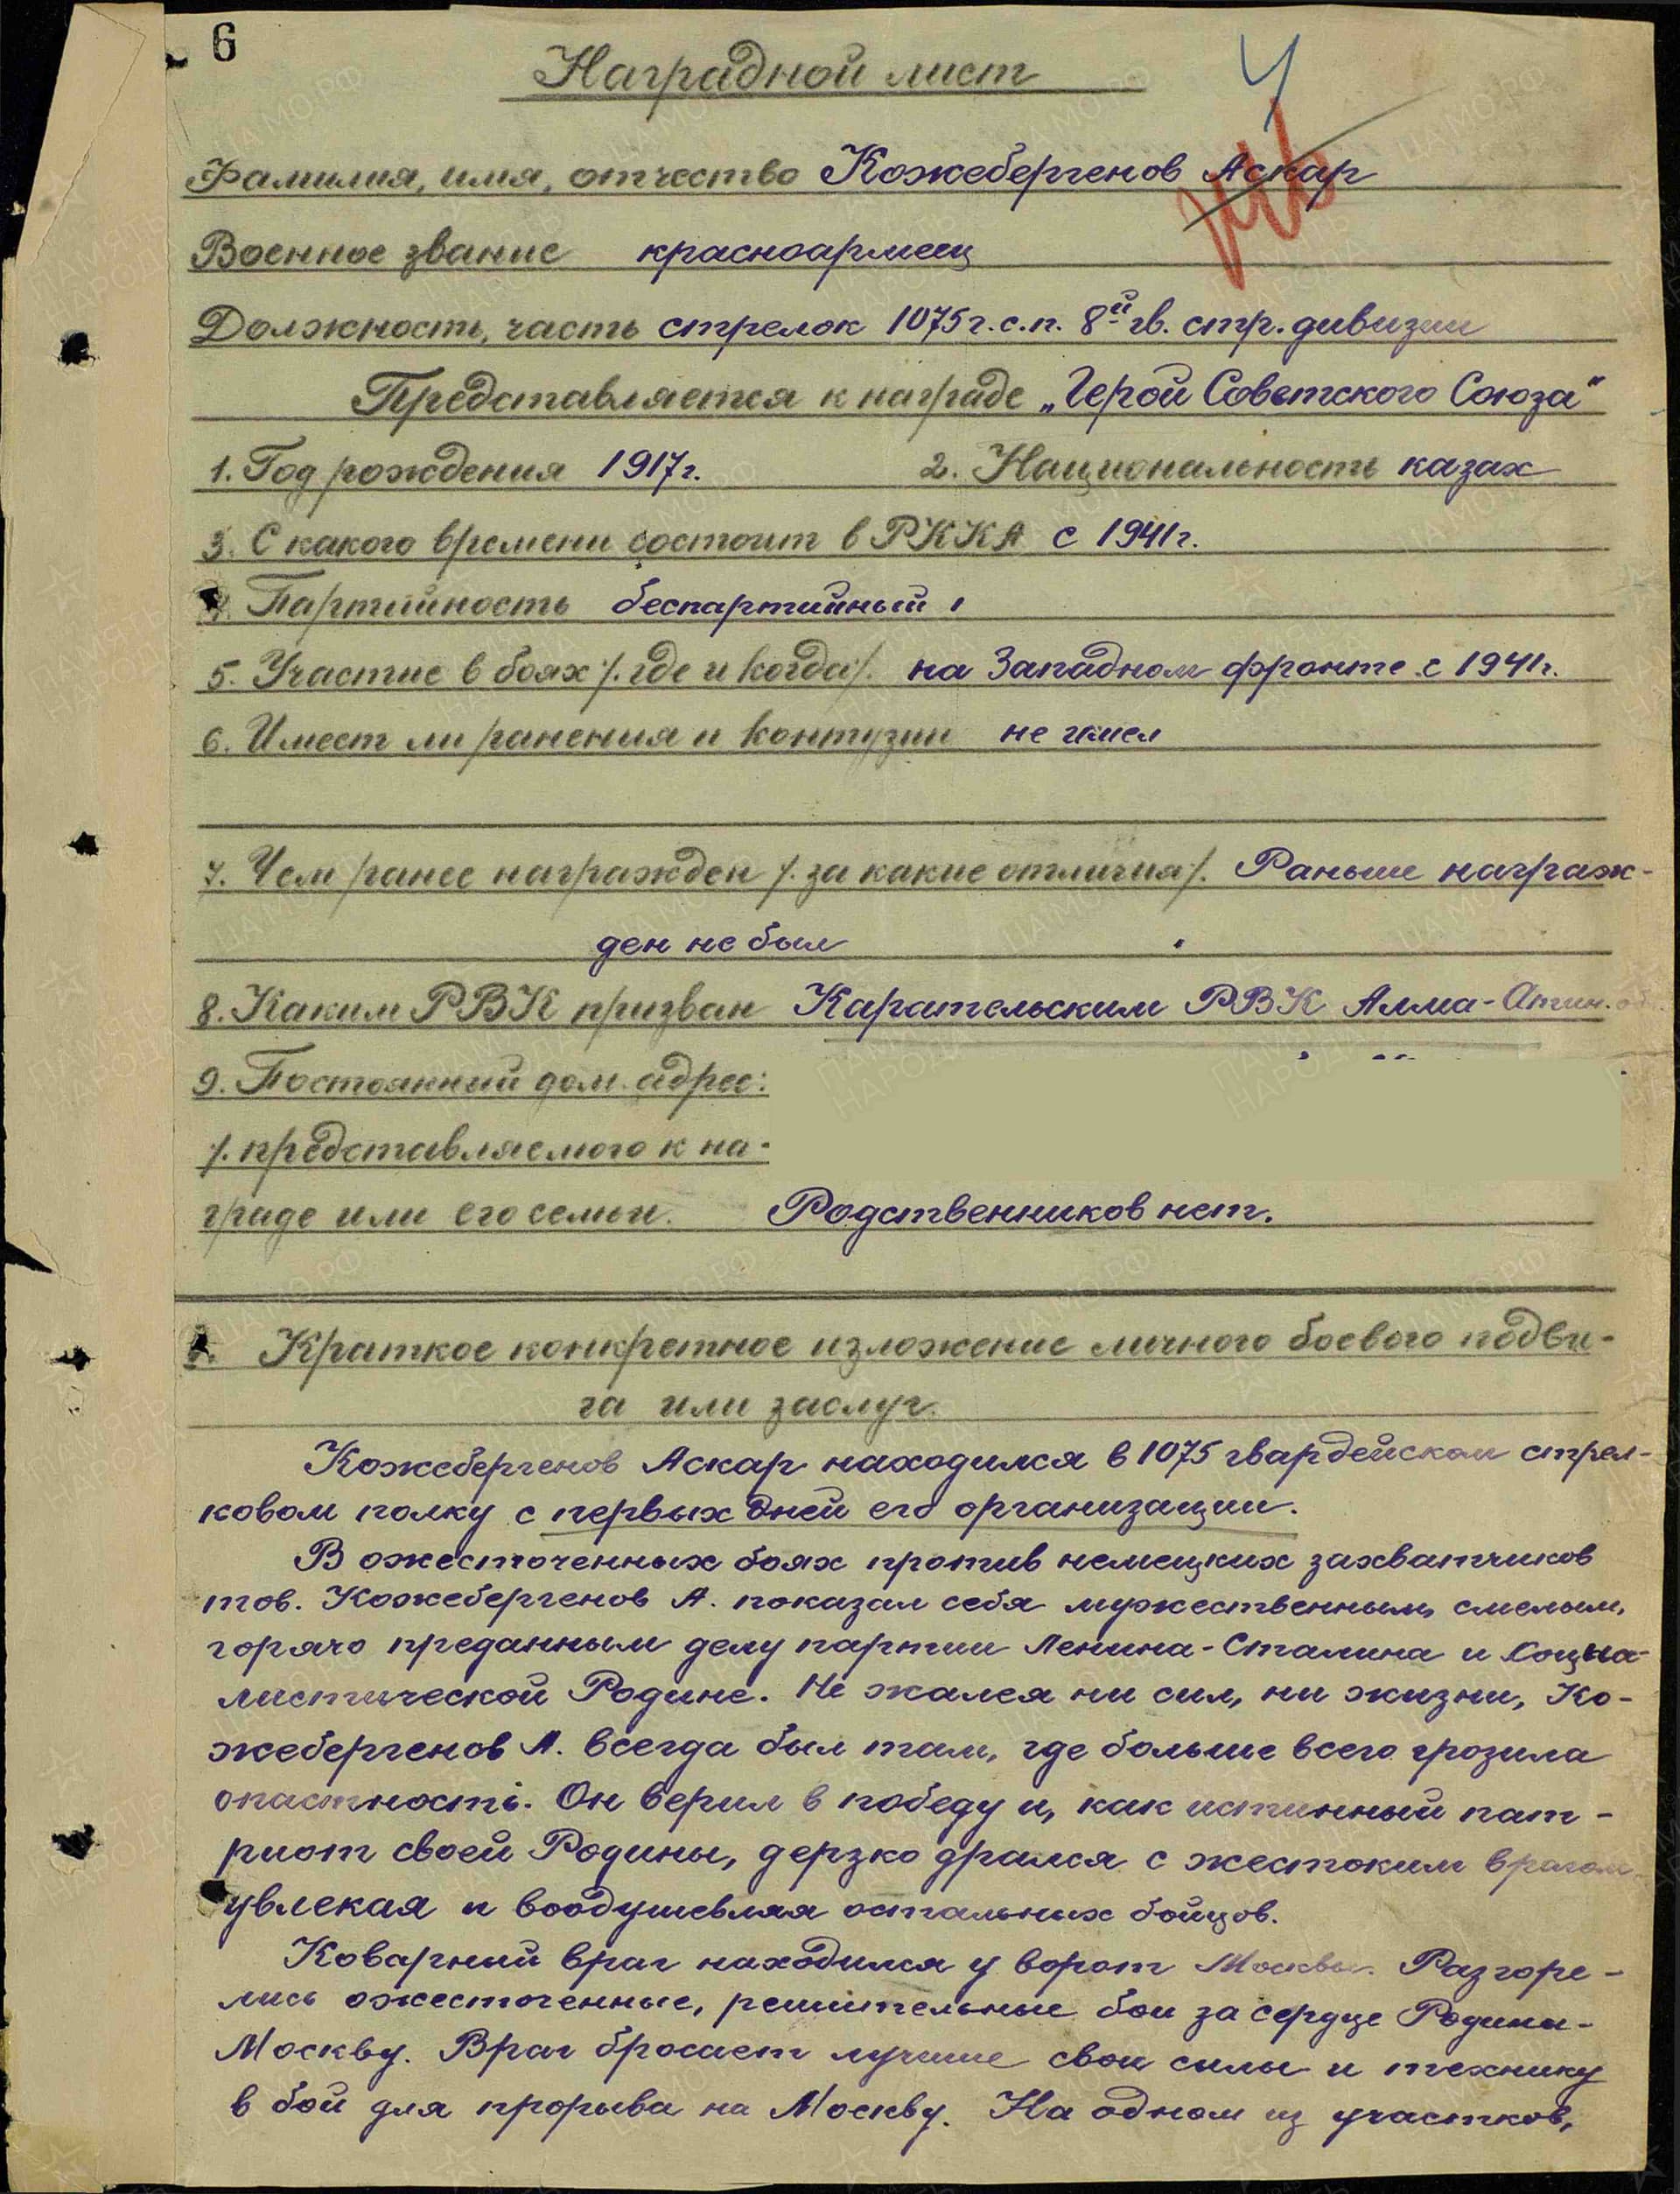 6
Наградной лист
Фамилия, имя, отчество Кожебергенов Аскар
Военное звание красноармеец
Должность, часть стрелок 1075 г.с.п. 8й гв. стр. дивизии
Представляется к награде „Герой Советского Союза"
1. Год рождения 1917г. 2. Национальность казах
3. С какого времени состоит в РККА с 1941г.
4. Партийность беспартийный
5. Участие в боях /. где и когда /. на Западном фронте с 1941г.
6. Имеет ли ранения и контузии не имел
7. Чем ранее награжден /. за какие отличия /. Раньше награж-
ден не был
8. Каким РВК призван Карательским РВК Алма-Атин. об.
9. Постоянный дом. адрес:
/. представляемого к на-
граде или его семьи. Родственников нет.
Краткое конкретное изложение личного боевого подви-
га или заслуг.
Кожебергенов Аскар находился в 1075 гвардейском стрел-
ковом полку с первых дней его организации.
В ожесточенных боях против немецких захватчиков
тов. Кожебергенов А. показал себя мужественным, смелым,
горячо преданным делу партии Ленина-Сталина и Социа-
листической Родине. Не жалея ни сил, ни жизни, Ко-
жебергенов А. всегда был там, где больше всего грозила
опастность. Он верил в победу и, как истинный пат-
риот своей Родины, дерзко дрался с жестоким врагом
увлекая и воодушевляя остальных бойцов.
Коварный враг находился у ворот Москвы. Разгоре-
лись ожесточенные, решительные бои за сердце Родины-
Москву. Враг бросает лучшие свои силы и технику
в бой для прорыва на Москву. На одном из участков,